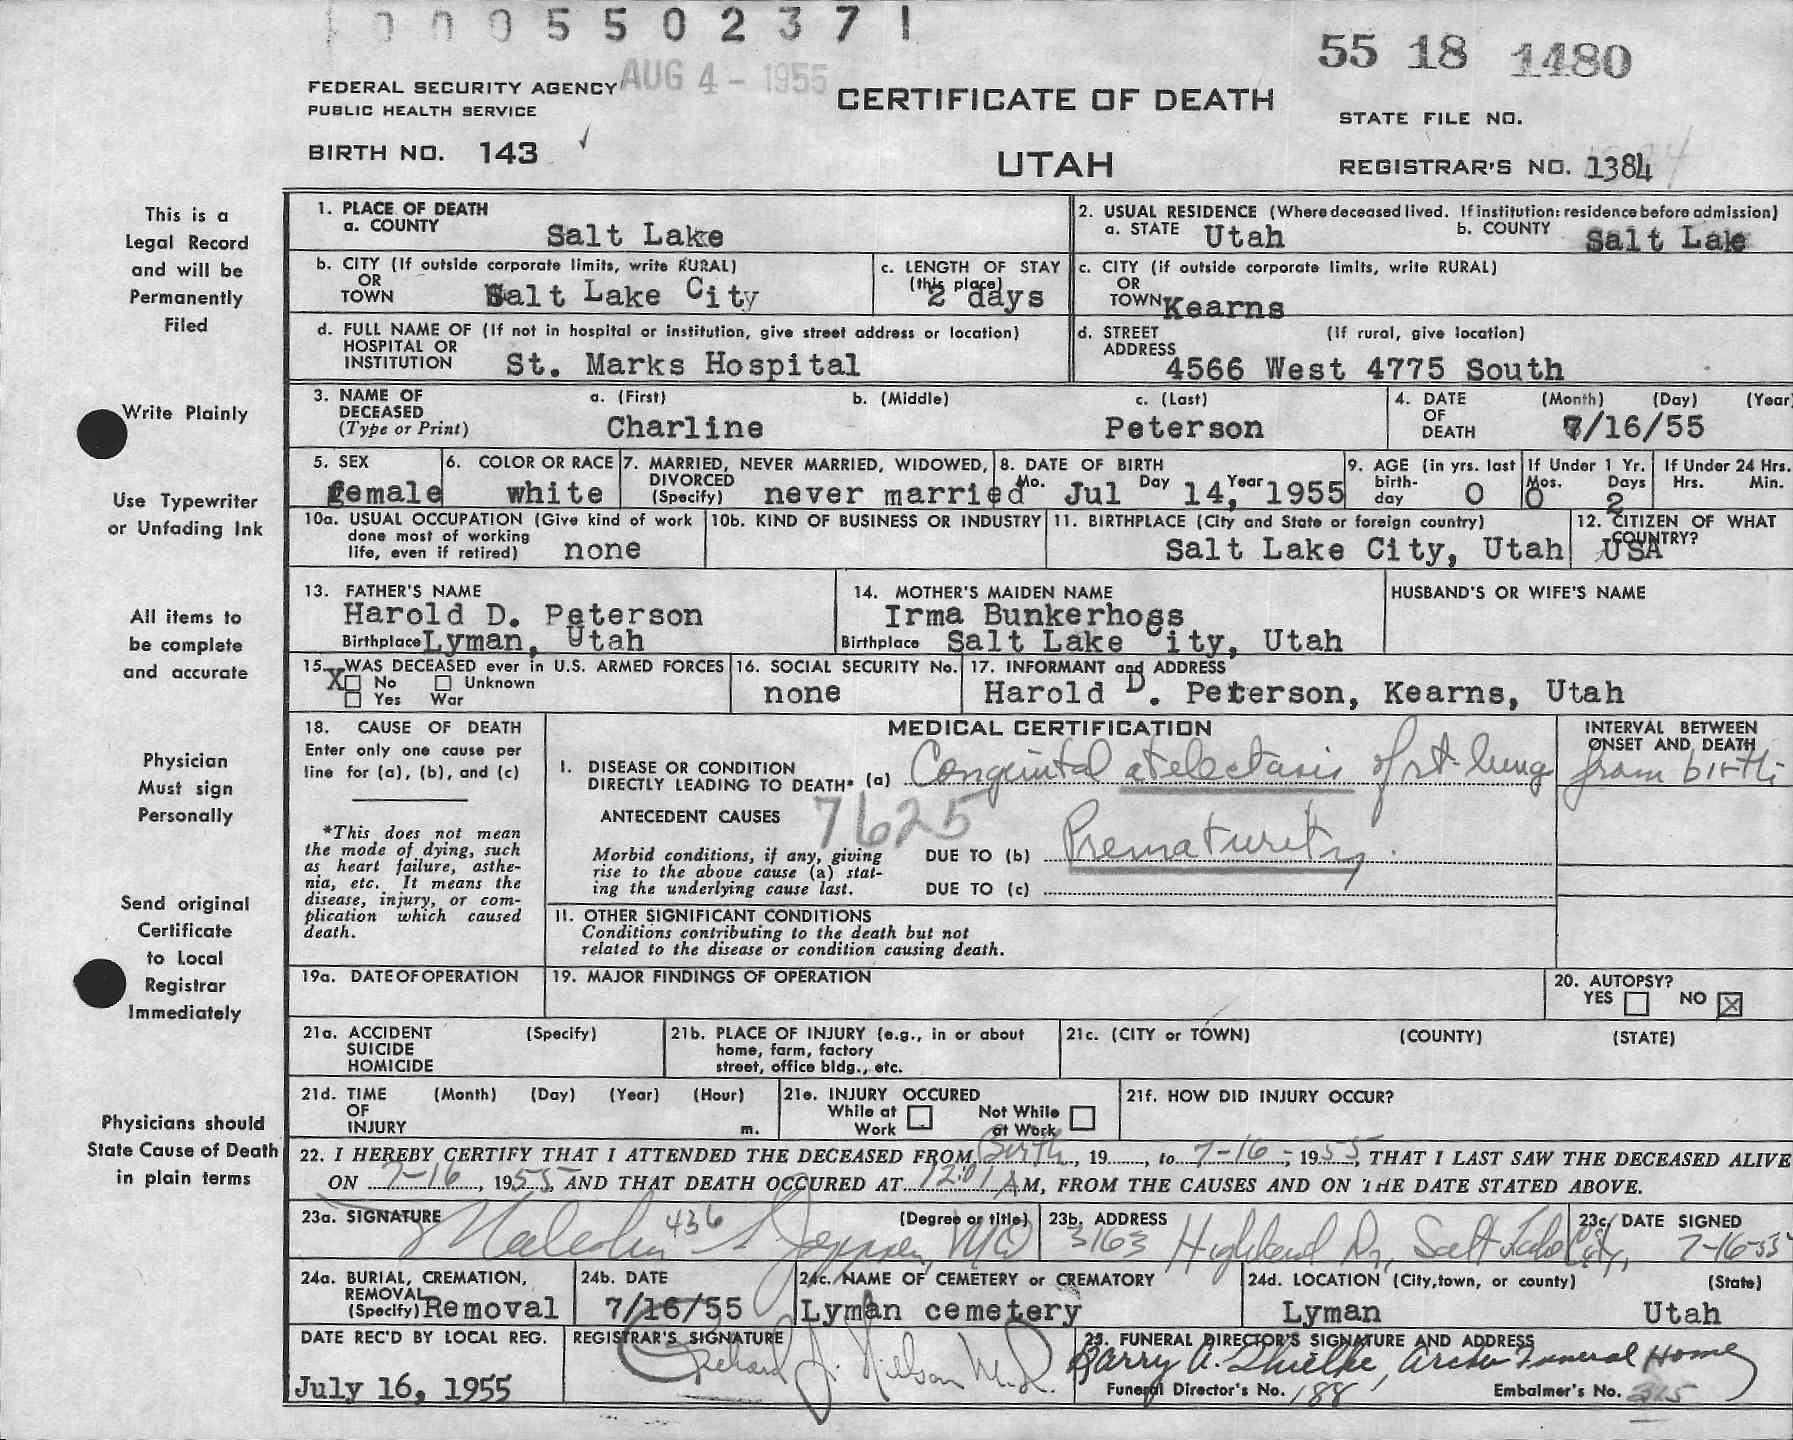 0 0 0 5 5 0 2 3 7 1
55 18 1480
AUG 4 - 1955
FEDERAL SECURITY AGENCY
PUBLIC HEALTH SERVICE
CERTIFICATE OF DEATH
STATE FILE NO.
BIRTH NO. 143
UTAH
REGISTRAR'S NO. 1384
This is a
Legal Record
and will be
Permanently
Filed
Write Plainly
Use Typewriter
or Unfading Ink
All items to
be complete
and accurate
Physician
Must sign
Personally
Send original
Certificate
to Local
Registrar
Immediately
Physicians should
State Cause of Death
in plain terms
1. PLACE OF DEATH
a. COUNTY Salt Lake
2. USUAL RESIDENCE (Where deceased lived. If institution: residence before admission)
a. STATE Utah b. COUNTY Salt Lake
b. CITY (If outside corporate limits, write RURAL)
OR
TOWN Salt Lake City
c. LENGTH OF STAY
(this place)
2 days
c. CITY (if outside corporate limits, write RURAL)
OR
TOWN Kearns
d. FULL NAME OF (If not in hospital or institution, give street address or location)
HOSPITAL OR
INSTITUTION St. Marks Hospital
d. STREET (If rural, give location)
ADDRESS 4566 West 4775 South
3. NAME OF DECEASED (Type or Print)
a. (First) b. (Middle) c. (Last)
Charline Peterson
4. DATE OF DEATH (Month) (Day) (Year)
7/16/55
5. SEX
female
6. COLOR OR RACE
white
7. MARRIED, NEVER MARRIED, WIDOWED,
DIVORCED
(Specify) never married
8. DATE OF BIRTH
Mo. Jul Day 14, Year 1955
9. AGE (in yrs. last birth-day 0
If Under 1 Yr.
Mos. 0 Days 2
If Under 24 Hrs.
Hrs. Min.
10a. USUAL OCCUPATION (Give kind of work
done most of working
life, even if retired) none
10b. KIND OF BUSINESS OR INDUSTRY
11. BIRTHPLACE (City and State or foreign country)
Salt Lake City, Utah
12. CITIZEN OF WHAT
COUNTRY?
USA
13. FATHER'S NAME
Harold D. Peterson
Birthplace Lyman, Utah
14. MOTHER'S MAIDEN NAME
Irma Bunkerhoss
Birthplace Salt Lake City, Utah
HUSBAND'S OR WIFE'S NAME
15. WAS DECEASED ever in U.S. ARMED FORCES
X No Unknown
Yes War
16. SOCIAL SECURITY No.
none
17. INFORMANT and ADDRESS
Harold D. Peterson, Kearns, Utah
18. CAUSE OF DEATH
Enter only one cause per
line for (a), (b), and (c)
*This does not mean
the mode of dying, such
as heart failure, asthe-
nia, etc. It means the
disease, injury, or com-
plication which caused
death.
MEDICAL CERTIFICATION
INTERVAL BETWEEN
ONSET AND DEATH
I. DISEASE OR CONDITION
DIRECTLY LEADING TO DEATH* (a) Congenital atelectasis of rt. lung from birth
ANTECEDENT CAUSES 7625
Morbid conditions, if any, giving
rise to the above cause (a) stat-
ing the underlying cause last.
DUE TO (b) Prematurity.
DUE TO (c)
II. OTHER SIGNIFICANT CONDITIONS
Conditions contributing to the death but not
related to the disease or condition causing death.
19a. DATE OF OPERATION
19. MAJOR FINDINGS OF OPERATION
20. AUTOPSY?
YES NO X
21a. ACCIDENT (Specify)
SUICIDE
HOMICIDE
21b. PLACE OF INJURY (e.g., in or about
home, farm, factory
street, office bldg., etc.
21c. (CITY or TOWN) (COUNTY) (STATE)
21d. TIME (Month) (Day) (Year) (Hour)
OF
INJURY m.
21e. INJURY OCCURED
While at Work Not While at Work
21f. HOW DID INJURY OCCUR?
22. I HEREBY CERTIFY THAT I ATTENDED THE DECEASED FROM Birth, 19...., to 7-16-, 1955, THAT I LAST SAW THE DECEASED ALIVE
ON 7-16, 1955, AND THAT DEATH OCCURED AT 12:01 AM, FROM THE CAUSES AND ON THE DATE STATED ABOVE.
23a. SIGNATURE (Degree or title)
Malcolm 436 S. Jeppsen, MD
23b. ADDRESS
3163 Highland Dr, Salt Lake City,
23c. DATE SIGNED
7-16-55
24a. BURIAL, CREMATION,
REMOVAL
(Specify) Removal
24b. DATE
7/16/55
24c. NAME OF CEMETERY or CREMATORY
Lyman cemetery
24d. LOCATION (City, town, or county) (State)
Lyman Utah
DATE REC'D BY LOCAL REG.
July 16, 1955
REGISTRAR'S SIGNATURE
J. Nielson M.D.
25. FUNERAL DIRECTOR'S SIGNATURE AND ADDRESS
Harry A. Funeral Home
Funeral Director's No. 188
Embalmer's No. 315